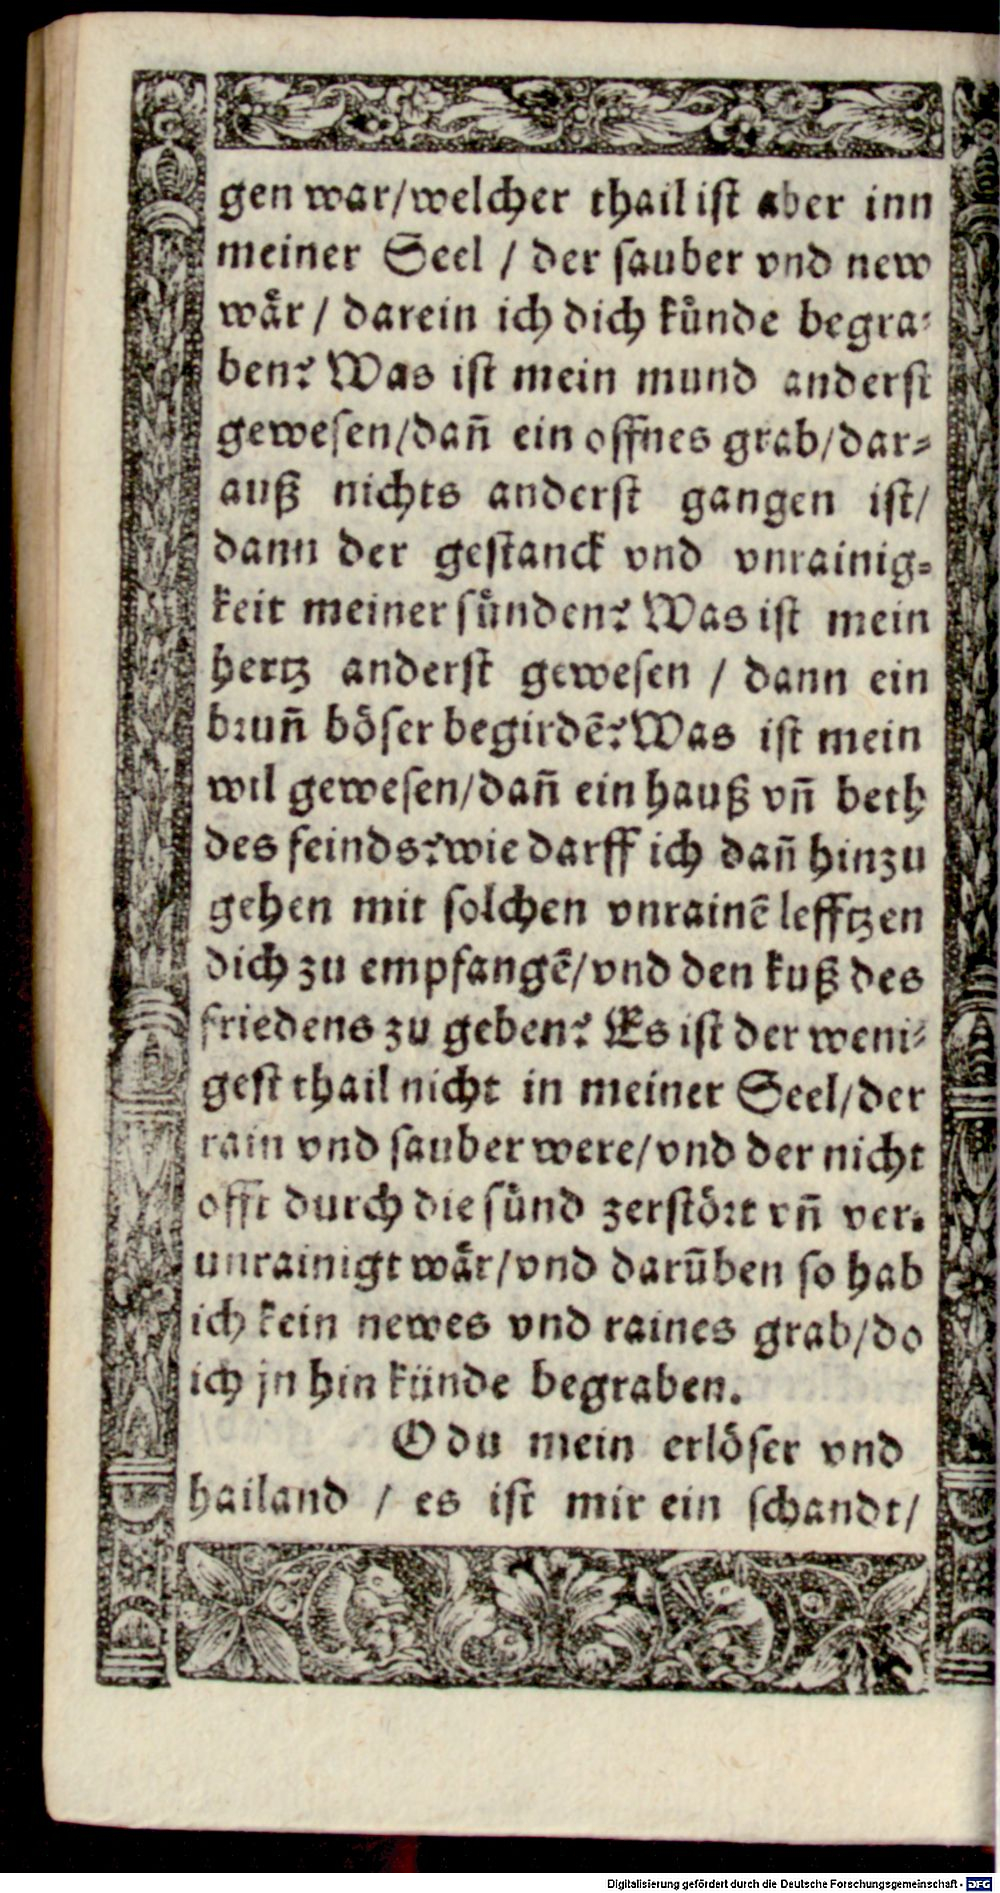 gen war/welcher thail ist aber inn
meiner Seel / der sauber vnd new
waͤr / darein ich dich kuͤnde begra⸗
ben? Was ist mein mund anderst
gewesen/dañ ein offnes grab/dar⸗
auß nichts anderst gangen ist/
dann der gestanck vnd vnrainig⸗
keit meiner suͤnden? Was ist mein
hertz anderst gewesen / dann ein
brunñ boͤser begirdẽ? Was ist mein
wil gewesen/dañ ein hauß vñ beth
des feinds? wie darff ich dañ hinzu
gehen mit solchen vnrainẽ lefftzen
dich zu empfangẽ/vnd den kuß des
friedens zu geben? Es ist der weni⸗
gest thail nicht in meiner Seel/der
rain vnd sauber were/vnd der nicht
offt durch die suͤnd zerstoͤrt vñ ver⸗
unrainigt waͤr/vnd daruͤben so hab
ich kein newes vnd raines grab/do
ich jn hin kuͤnde begraben.
O du mein erloͤser vnd
hailand / es ist mir ein schandt/
Digitalisierung gefördert durch die Deutsche Forschungsgemeinschaft - DFG